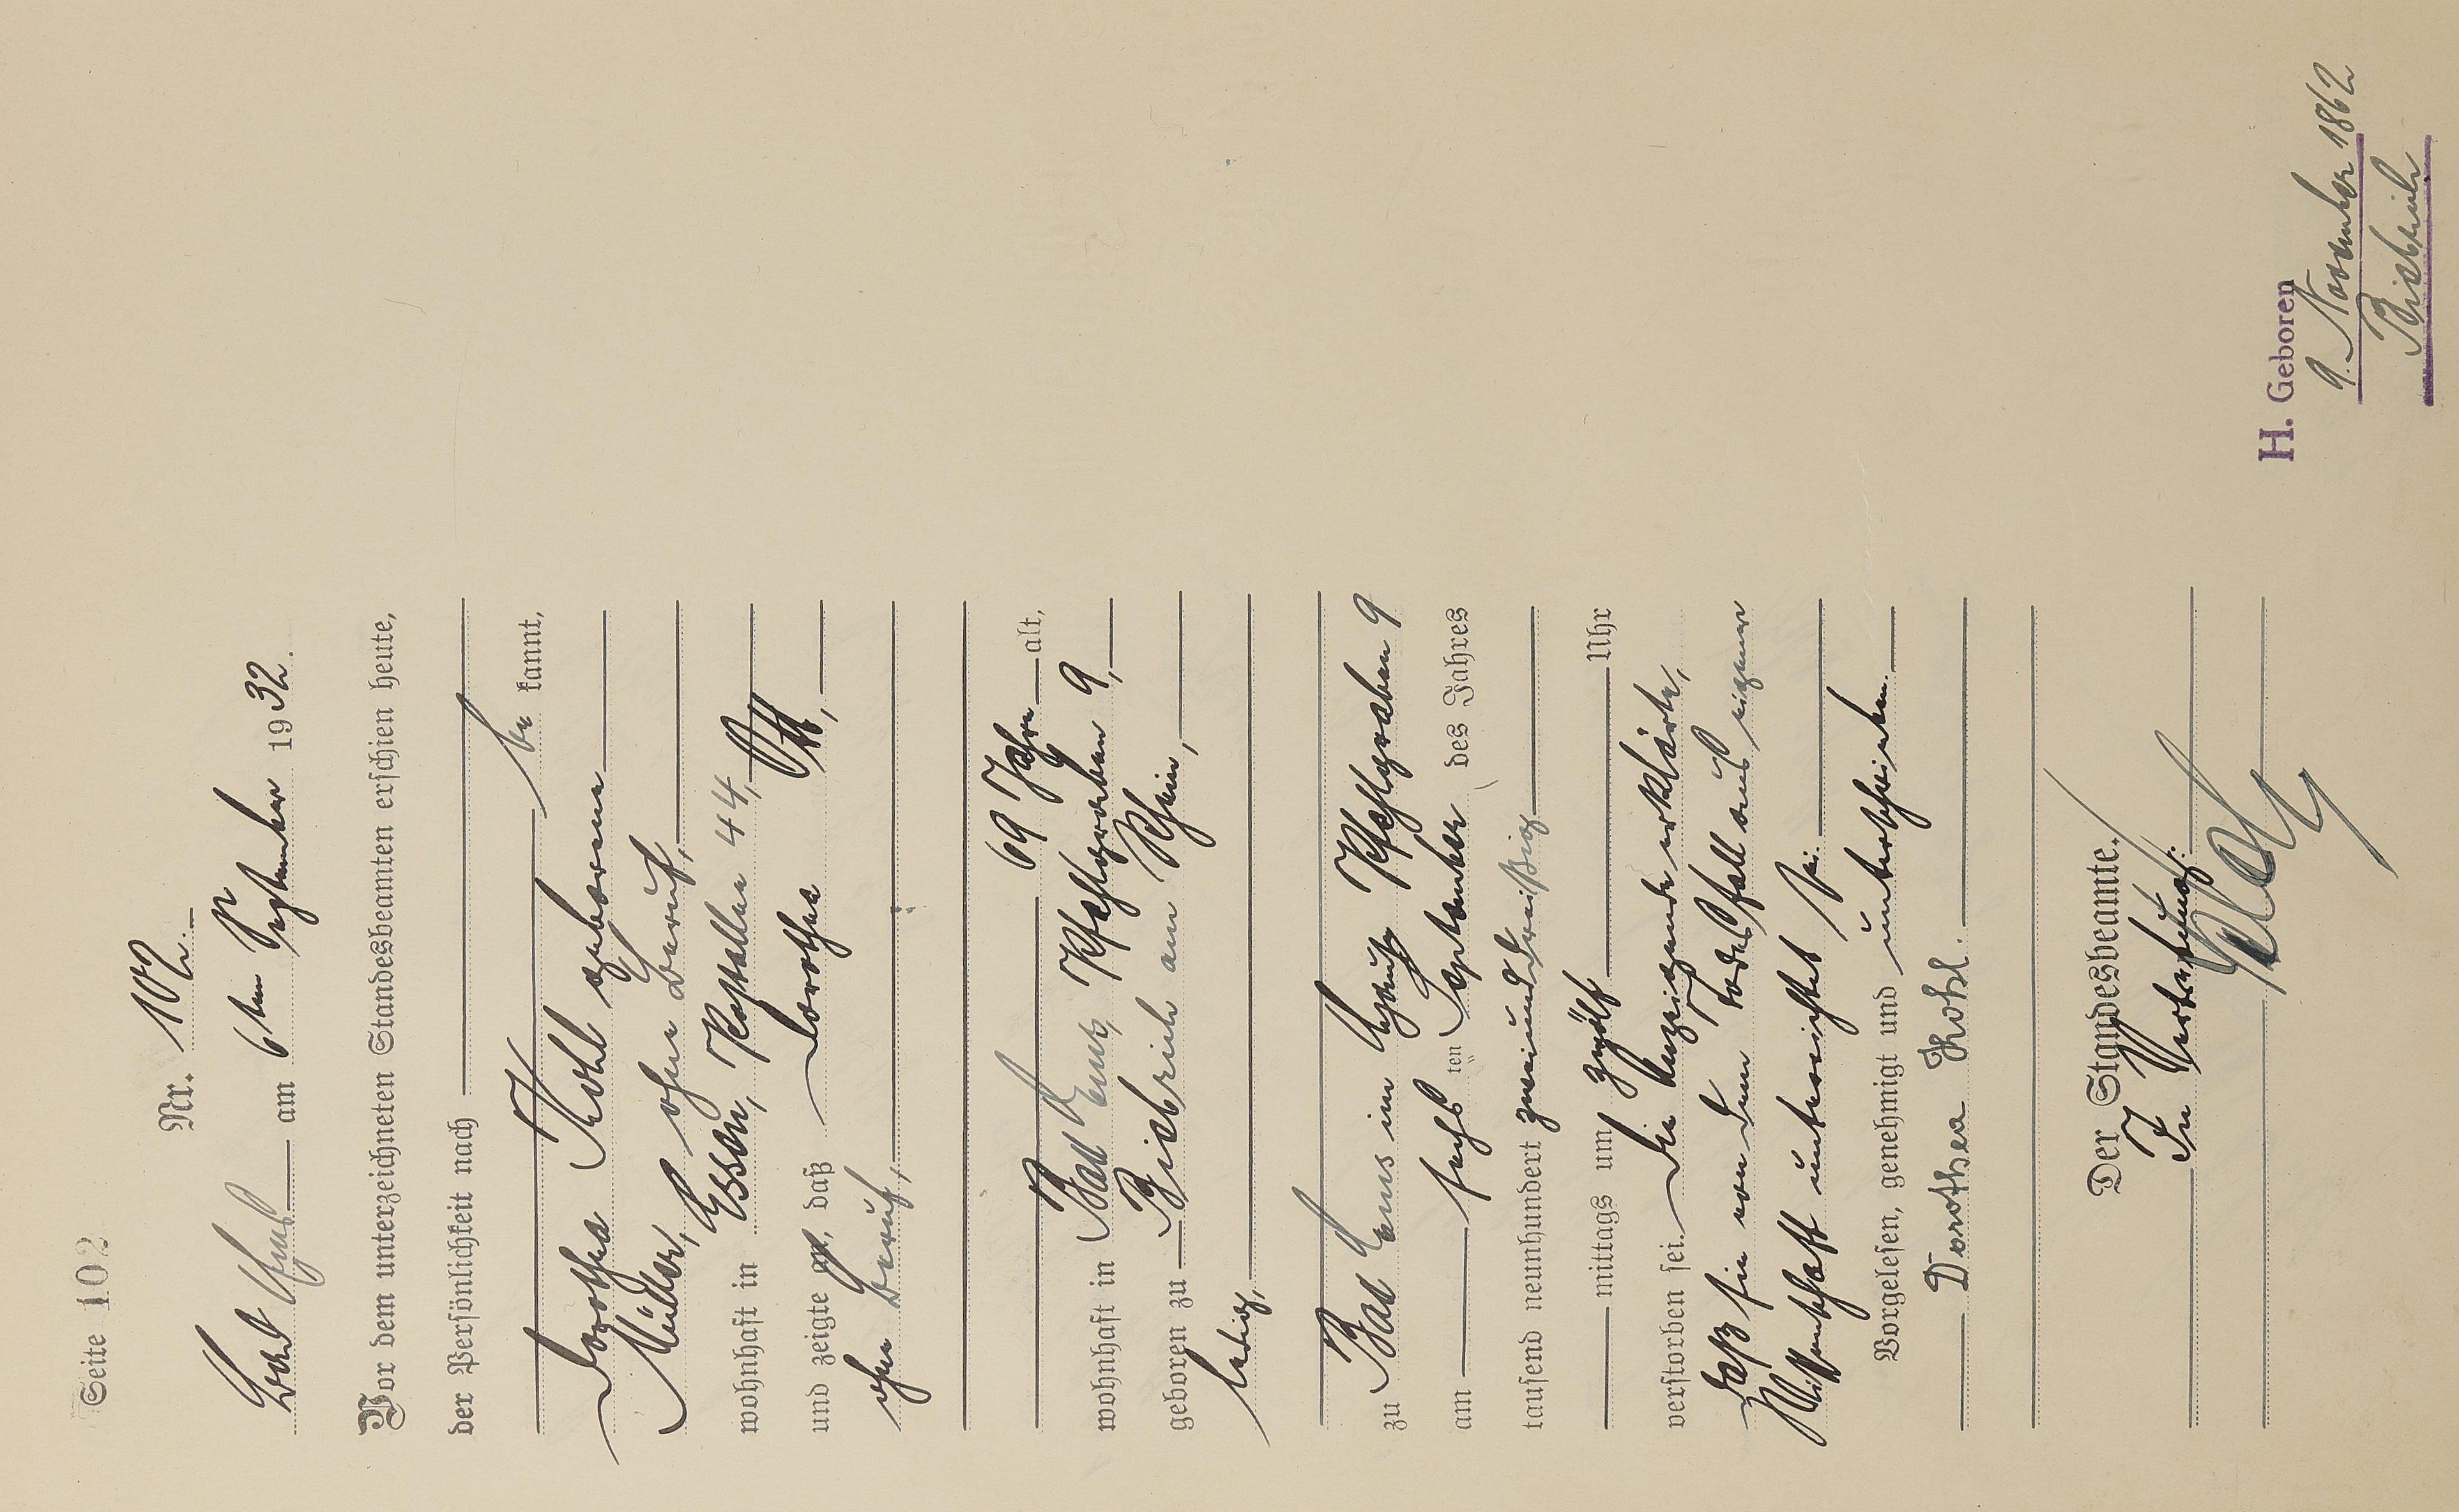 Seite 102
Nr. 102.
Bad Ems am 6ten September 1932.
Vor dem unterzeichneten Standesbeamten erschien heute,
der Persönlichkeit nach
be kannt,
Dorothea Kohl geborene
Müller, ohne Beruf,
wohnhaft in Essen, 44,
und zeigte an, daß Dorothea Ott,
ohne Beruf,
69 Jahre alt,
wohnhaft in Bad Ems, Pfahlgraben 9,
geboren zu Biebrich am Rhein,
ledig,
zu Bad Ems im Hause Pfahlgraben 9
am sechsten September des Jahres
tausend neunhundert zweiunddreißig
mittags um zwölf Uhr
verstorben sei. Die Anzeigende erklärte,
daß sie von dem Todesfall aus eigener
Wissenschaft unterrichtet sei.
Vorgelesen, genehmigt und unterschrieben.
Dorothea Kohl.
Der Standesbeamte.
In Vertretung:
H. Geboren
9. November 1862
Biebrich